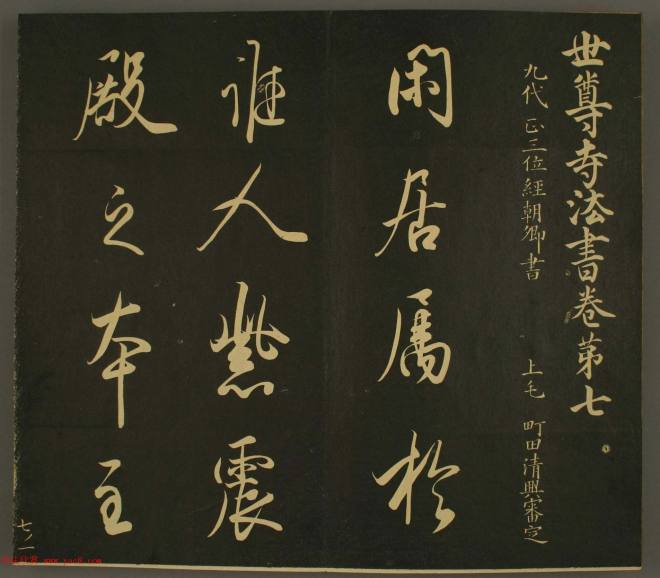 世尊寺法書卷第七
九代 正三位經朝卿書 上毛 町田清興審定
閑居属於
誰人紫震
殿之本主
七ノ一